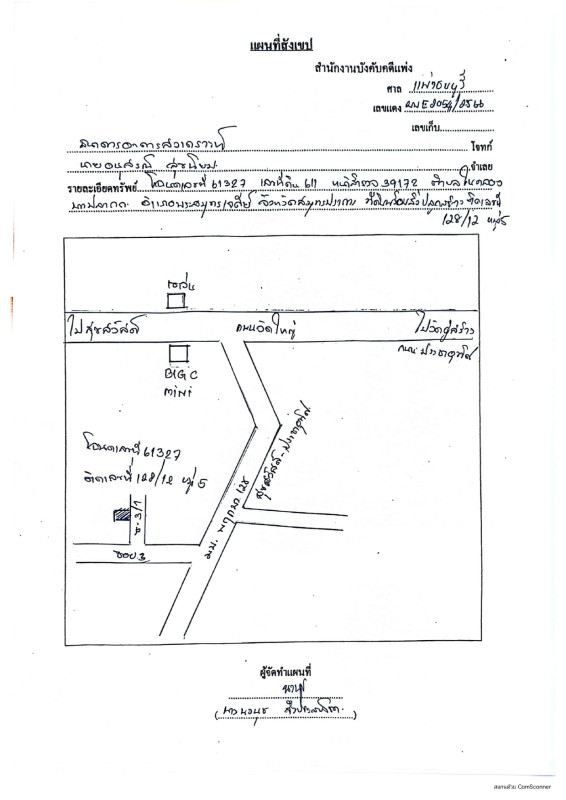 แผนที่สังเขป
สำนักงานบังคับคดีแพ่ง
ศาล แพ่งธนบุรี
เลขแดง ผบE8054/2566
เลขเก็บ
ธนาคารอาคารสงเคราะห์ โจทก์
นาย จำเลย
รายละเอียดทรัพย์ โฉนดเลขที่ 61327 เลขที่ดิน 611 หน้าสำรวจ 39172 ตำบลในคลอง
บางปลากด อำเภอพระสมุทรเจดีย์ จังหวัดสมุทรปราการ ที่ดินพร้อมสิ่งปลูกสร้าง ติดเลขที่
128/12 หมู่ 5
เซเว่น
ไปสุขสวัสดิ์ ถนนวัดใหญ่ ไปวัดคู่สร้าง
ถนน ประชาอุทิศ
BIG C
mini
สุขสวัสดิ์-ประชาอุทิศ
โฉนดเลขที่ 61327
ติดเลขที่ 128/12 หมู่ 5
มบ. พฤกษา
ซ. 3/1
ซอย 3
ผู้จัดทำแผนที่
สแกนด้วย CamScanner